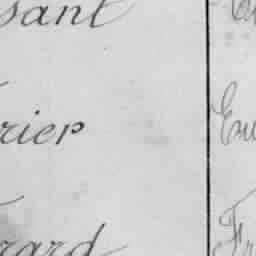 sant
rier Eu
rard Fr